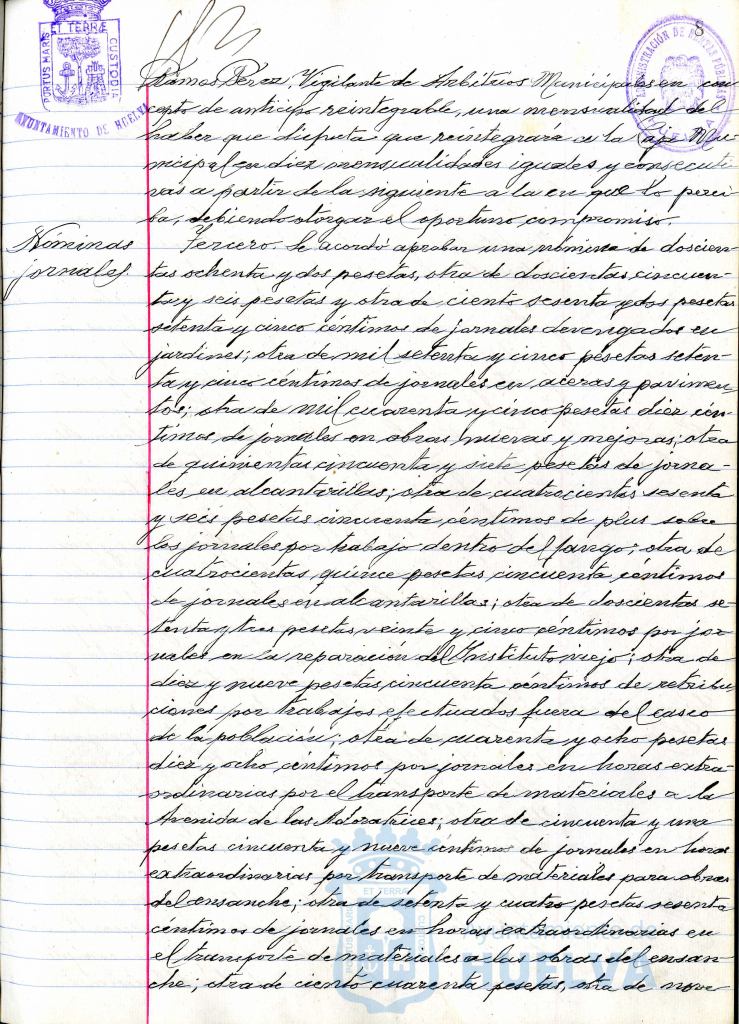 8
ET TERRÆ
PORTUS MARIS
CUSTODIA
AYUNTAMIENTO DE HUELVA
ADMINISTRACIÓN DE RENTAS PÚBLICAS
HUELVA
Ramos Perez, Vigilante de Arbitrios Municipales en con-
cepto de anticipo reintegrable, una mensualidad del
haber que disfruta que reintegrará a la Caja Mu-
nicipal en diez mensualidades iguales y consecuti-
vas a partir de la siguiente a la en que lo perci-
ba, debiendo otorgar el oportuno compromiso.
Nóminas
jornales.
Tercero. Se acordó aprobar una nómina de doscien-
tas ochenta y dos pesetas, otra de doscientas cincuen-
ta y seis pesetas y otra de ciento sesenta y dos pesetas
setenta y cinco céntimos de jornales devengados en
jardines; otra de mil setenta y cinco pesetas seten-
ta y cinco céntimos de jornales en aceras y pavimen-
tos; otra de mil cuarenta y cinco pesetas diez cén-
timos de jornales en obras nuevas y mejoras; otra
de quinientas cincuenta y siete pesetas de jorna-
les en alcantarillas; otra de cuatrocientas sesenta
y seis pesetas cincuenta céntimos de plus sobre
los jornales por trabajo dentro del fango; otra de
cuatrocientas quince pesetas cincuenta céntimos
de jornales en alcantarillas; otra de doscientas se-
tenta y tres pesetas veinte y cinco céntimos por jor-
nales en la reparación del Instituto viejo; otra de
diez y nueve pesetas cincuenta céntimos de retribu-
ciones por trabajos efectuados fuera del casco
de la población; otra de cuarenta y ocho pesetas
diez y ocho céntimos por jornales en horas extra-
ordinarias por el transporte de materiales a la
Avenida de las Adoratrices; otra de cincuenta y una
pesetas cincuenta y nueve céntimos de jornales en horas
extraordinarias por transporte de materiales para obras
del ensanche; otra de setenta y cuatro pesetas sesenta
céntimos de jornales en horas extraordinarias en
el transporte de materiales a las obras del ensan-
che; otra de ciento cuarenta pesetas, otra de nove-
ET TERRA
PORTUS MARIS
CUSTODIA
Ayuntamiento de
HUELVA